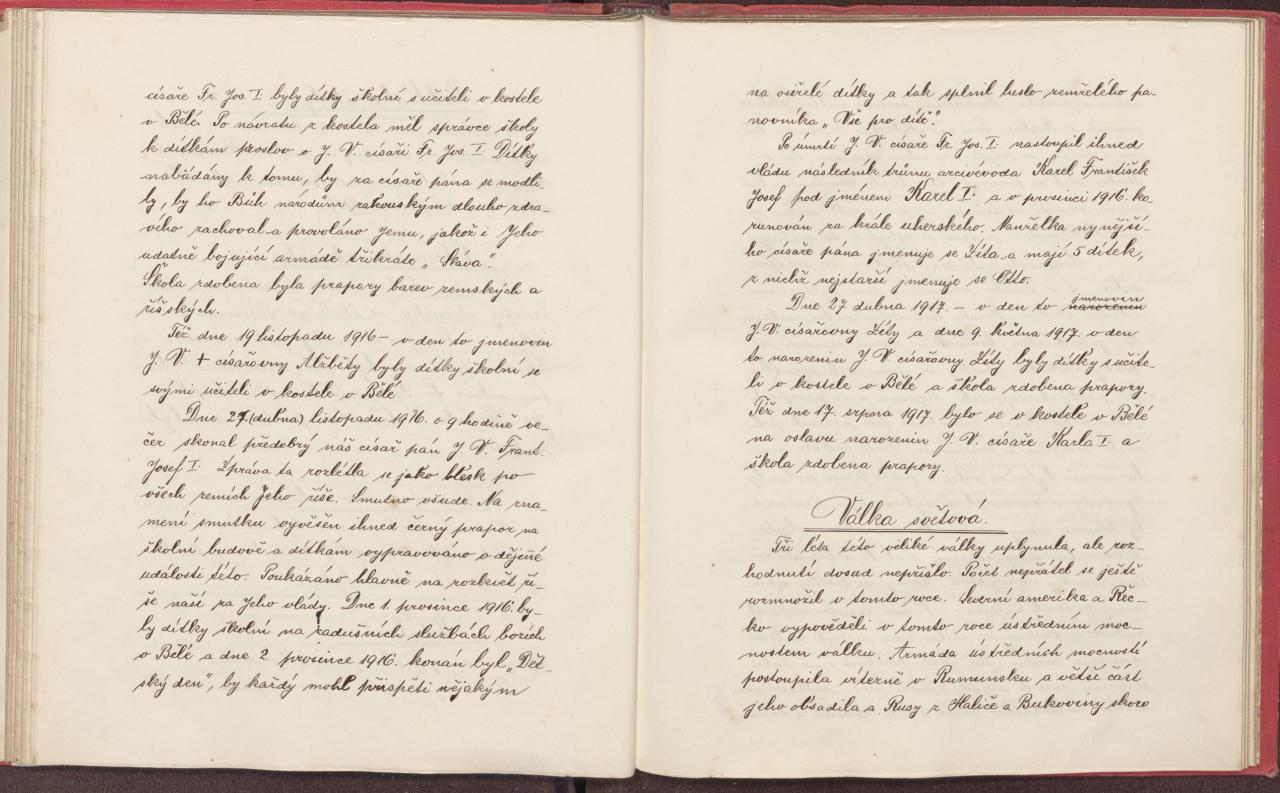 císaře Fr. Jos. I byly dítky školní s učiteli v kostele
v Bělé. Po návratu z kostela měl správce školy
k dítkám proslov o J. V. císaři Fr. Jos. I. Dítky
nabádány k tomu, by za císaře pána se modli-
ly, by ho Bůh národům rakouským dlouho zdra-
vého zachoval a provoláno Jemu, jakož i Jeho
udatně bojující armádě třikráte „Sláva".
Škola zdobena byla prapory barev zemských a
říšských.
Též dne 19 listopadu 1916 – v den to jmenovin
J. V. + císařovny Alžběty byly dítky školní se
svými učiteli v kostele v Bělé
Dne 21. (dubna) listopadu 1916. o 9 hodině ve-
čer skonal předobrý náš císař pán J. V. Frant.
Josef I. Zpráva ta rozlétla se jako blesk po
všech zemích Jeho říše. Smutno všude. Na zna-
mení smutku vyvěšen ihned černý prapor na
školní budově a dítkám vypravováno o dějinné
události této. Poukázáno hlavně na rozkvět ří-
še naší za Jeho vlády. Dne 1. prosince 1916. by-
ly dítky školní na zadušních službách božích
v Bělé a dne 2. prosince 1916. konán byl „Dět-
ský den", by každý mohl přispěti nějakým
na osiřelé dítky a tak splnil heslo zemřelého pa-
novníka „Vše pro dítě".
Po úmrtí J. V. císaře Fr. Jos. I. nastoupil ihned
vládu následník trůnu arcivévoda Karel František
Josef pod jménem Karel I. a v prosinci 1916. ko-
runován za krále uherského. Manželka nynější-
ho císaře pána jmenuje se Zita a mají 5 dítek,
z nichž nejstarší jmenuje se Otto.
Dne 27 dubna 1917. – v den to narozenin jmenovin
J. V. císařovny Zity a dne 9. května 1917. v den
to narozenin J. V. císařovny Zity byly dítky s učite-
li v kostele v Bělé a škola zdobena prapory.
Též dne 17. srpna 1917. bylo se v kostele v Bělé
na oslavu narozenin J. V. císaře Karla I. a
škola zdobena prapory.
Válka světová.
Tři léta této veliké války uplynula, ale roz-
hodnutí dosud nepřišlo. Počet nepřátel se ještě
rozmnožil v tomto roce. Severní amerika a Řec-
ko vypověděli v tomto roce ústředním moc-
nostem válku. Armáda ústředních mocností
postoupila vítězně v Rumunsku a větší část
jeho obsadila a Rusy z Haliče a Bukoviny skoro